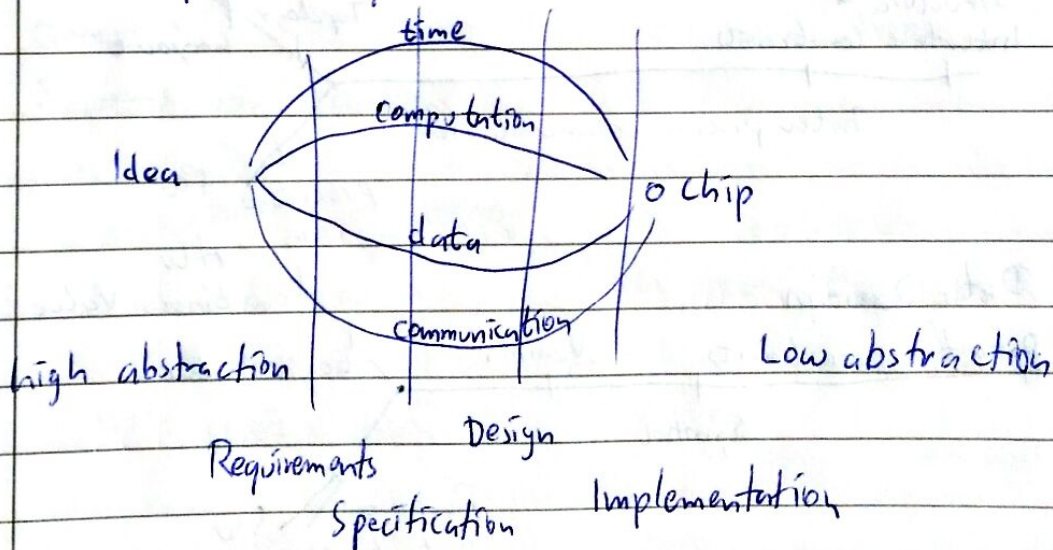 time
computation
Idea
o Chip
data
communication
high abstraction
Low abstraction
Design
Requirements
Specification
Implementation